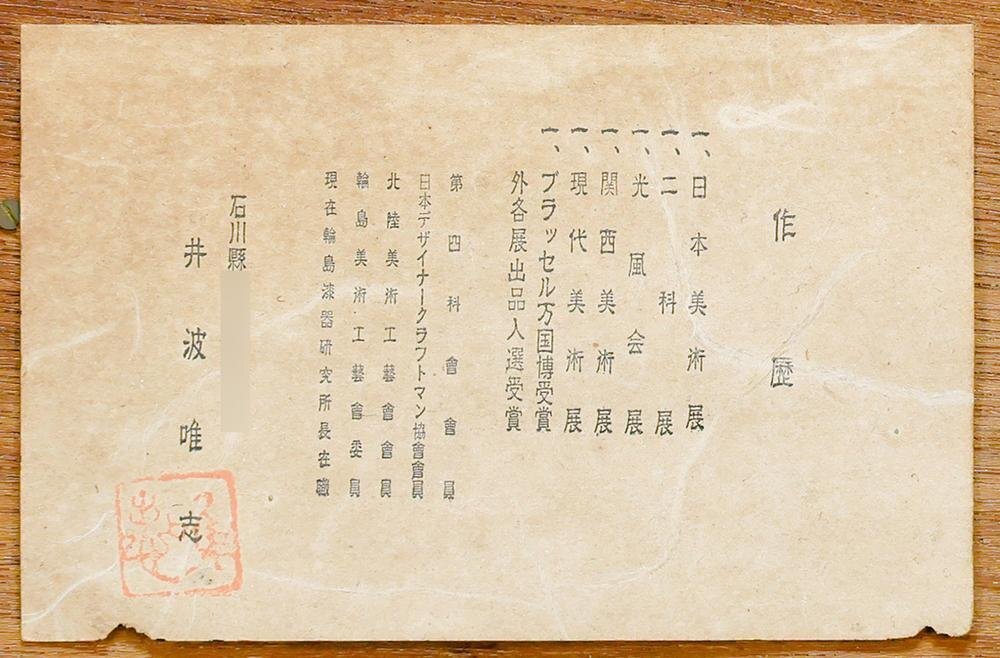 作歴
一、日本美術展
一、二科展
一、光風会展
一、関西美術展
一、現代美術展
一、ブラッセル万国博受賞
外各展出品入選受賞
第四科會會員
日本デザイナークラフトマン協會會員
北陸美術工藝會會員
輪島美術工藝會委員
現在輪島漆器研究所長在職
石川縣
井波唯志